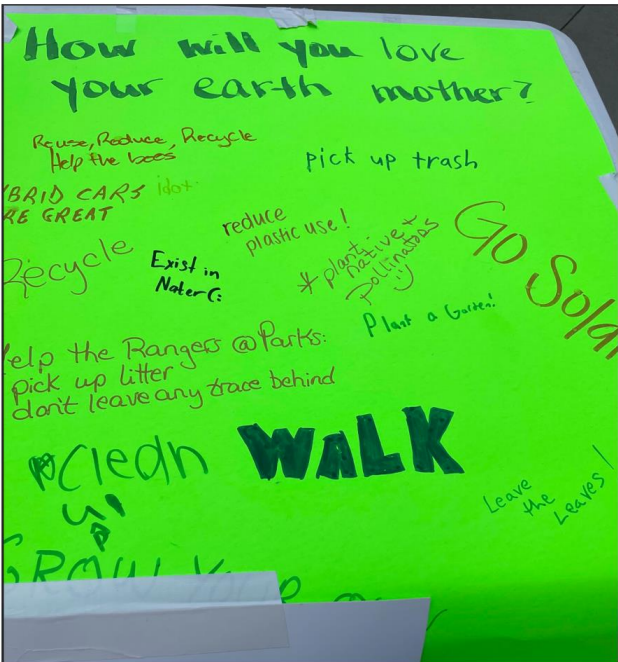 How will you love
your earth mother?
Reuse, Reduce, Recycle
Help the bees
pick up trash
BRID CARS
RE GREAT
reduce
plastic use!
* plant
native +
pollinators
:)
GO Solar
Recycle
Exist in
Nater C:
Plant a Garden!
elp the Rangers @ Parks:
pick up litter
don't leave any trace behind
Clean
UP
WALK
Leave
the
Leaves!
GROW